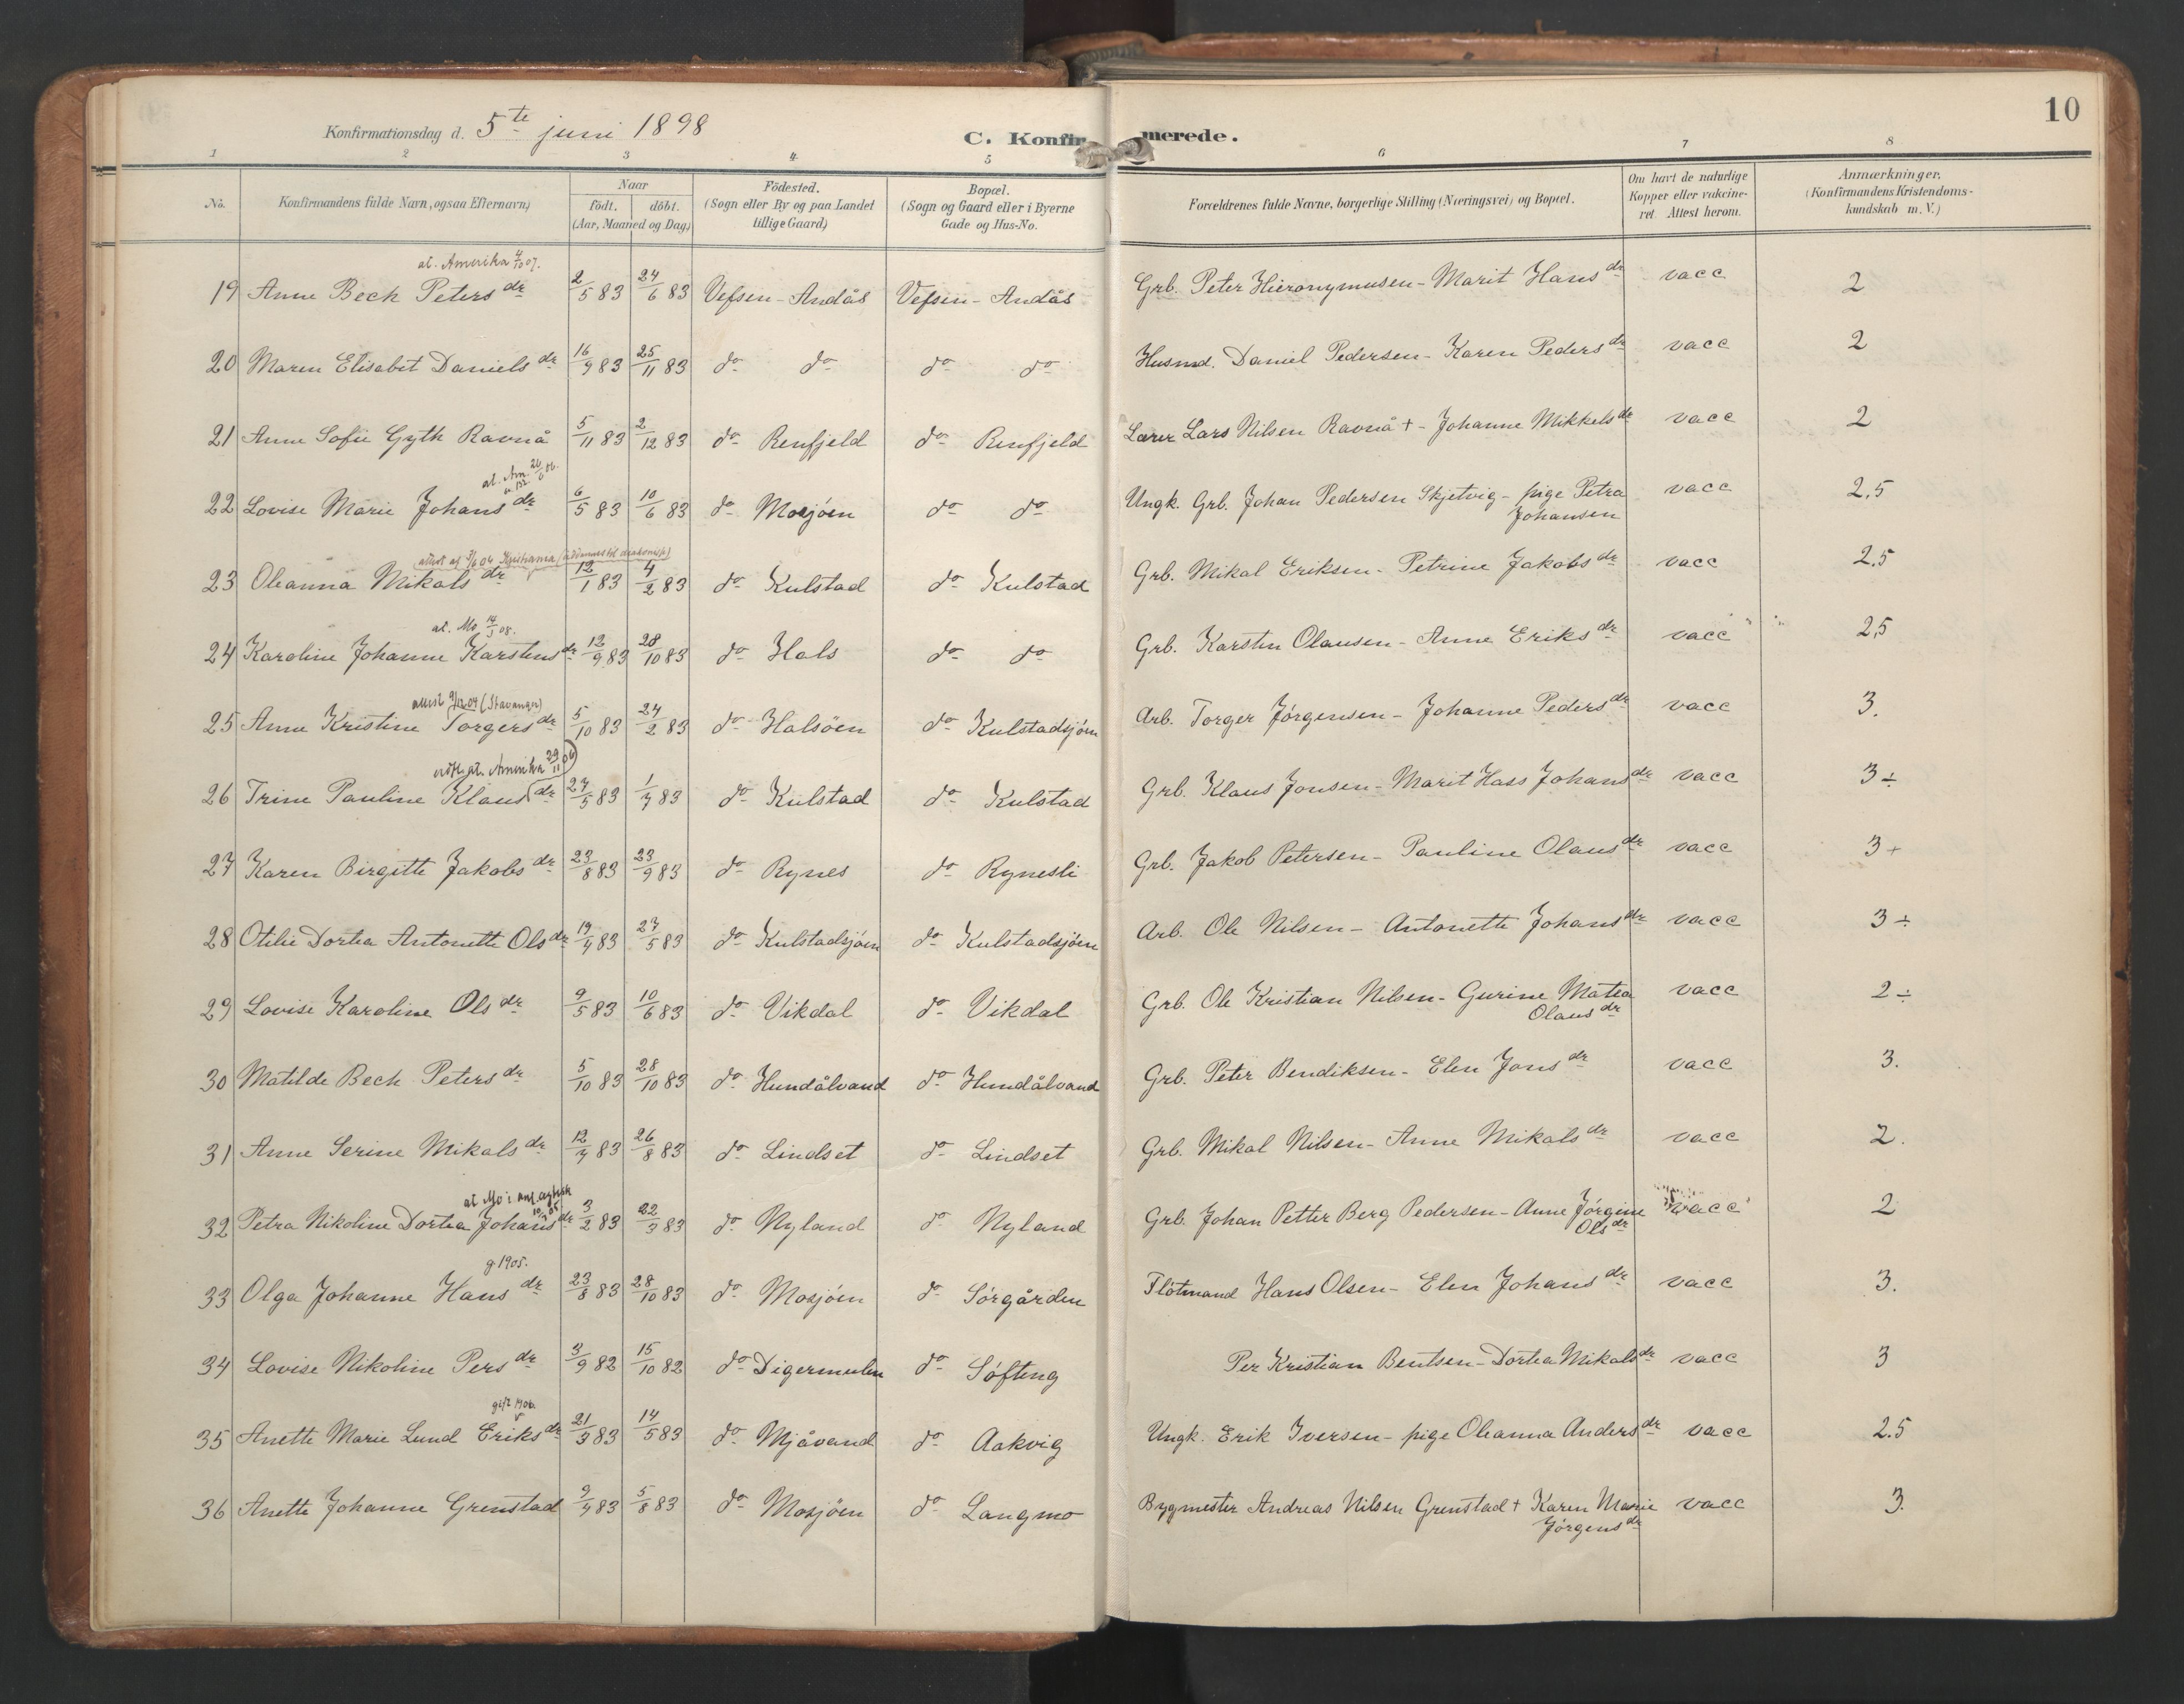 10
Konfirmationsdag d. 5te juni 1898
C. Konfirmerede.
1 2 3 4 5 6 7 8
No. Konfirmandens fulde Navn, ogsaa Efternavn) Naar födt. döbt. (Aar, Maaned og Dag) Födested. (Sogn eller By og paa Landet tillige Gaard) Bopæl. (Sogn og Gaard eller i Byerne Gade og Hus-No. Forældrenes fulde Navne, borgerlige Stilling (Næringsvei) og Bopæl. Om havt de naturlige Kopper eller vakcineret. Attest herom. Anmærkninger. (Konfirmandens Kristendomskundskab m. V.)
at. Amerika 4/10 07.
19 Anne Bech Petersdr 2/5 83 24/6 83 Vefsen - Andås Vefsen - Andås Grb. Peter Hieronymusen - Marit Hansdr vacc 2
20 Maren Elisabet Danielsdr 16/9 83 25/11 83 do do do do Husmd. Daniel Pedersen - Karen Pedersdr vacc 2
21 Anne Sofie Gyth Ravnå 5/11 83 2/12 83 do Renfjeld do Renfjeld Lærer Lars Nilsen Ravnå + - Johanne Mikkelsdr vacc 2
at. Am. 26/6 06.
22 Lovise Marie Johansdr 6/5 83 10/6 83 do Mosjöen do do Ungk. Grb. Johan Pedersen Skjetvig - pige Petra Johansen vacc 2,5
attest af 9/6 04 Kristiania
23 Oleanna Mikalsdr 12/1 83 4/2 83 do Kulstad do Kulstad Grb. Mikal Eriksen - Petrine Jakobsdr vacc 2,5
at. Mo 14/5 08.
24 Karoline Johanne Karstensdr 12/9 83 28/10 83 do Hals do do Grb. Karsten Olausen - Anne Eriksdr vacc 2,5
attest 9/12 04 (Stavanger)
25 Anne Kristine Torgersdr 5/10 83 24/2 83 do Halsöen do Kulstadsjöen Arb. Torger Jörgensen - Johanne Pedersdr vacc 3.
at. Amerika 29/11 06
26 Trine Pauline Klausdr 27/5 83 1/7 83 do Kulstad do Kulstad Grb. Klaus Jonsen - Marit Hass Johansdr vacc 3÷
27 Karen Birgitte Jakobsdr 23/8 83 23/9 83 do Rynes do Rynesli Grb. Jakob Petersen - Pauline Olausdr vacc 3+
28 Otilie Dortea Antonette Olsdr 19/4 83 27/5 83 do Kulstadsjöen do Kulstadsjöen Arb. Ole Nilsen - Antonette Johansdr vacc 3÷
29 Lovise Karoline Olsdr 9/5 83 10/6 83 do Vikdal do Vikdal Grb. Ole Kristian Nilsen - Gurine Matea Olausdr vacc 2÷
30 Matilde Bech Petersdr 5/10 83 28/10 83 do Hundålvand do Hundålvand Grb. Peter Bendiksen - Elen Jonsdr vacc 3.
31 Anne Serine Mikalsdr 12/7 83 26/8 83 do Lindset do Lindset Grb. Mikal Nilsen - Anne Mikalsdr vacc 2.
at Mo i
32 Petra Nikoline Dortea Johansdr 3/2 83 22/3 83 do Nyland do Nyland Grb. Johan Petter Berg Pedersen - Anne Jörgine Olsdr vacc 2
g. 1905.
33 Olga Johanne Hansdr 23/8 83 28/10 83 do Mosjöen do Sörgården Flötmand Hans Olsen - Elen Johansdr vacc 3.
34 Lovise Nikoline Persdr 3/9 82 15/10 82 do Digermulen do Söfting Per Kristian Bentsen - Dortea Mikalsdr vacc 3
gift 1906.
35 Anette Marie Lund Eriksdr 21/3 83 14/5 83 do Mjåvand do Aakvig Ungk. Erik Iversen - pige Oleanna Andersdr vacc 2.5
36 Anette Johanne Grenstad 9/7 83 5/8 83 do Mosjöen do Langmo Bygmester Andreas Nilsen Grenstad + Karen Marie Jörgensdr vacc 3.